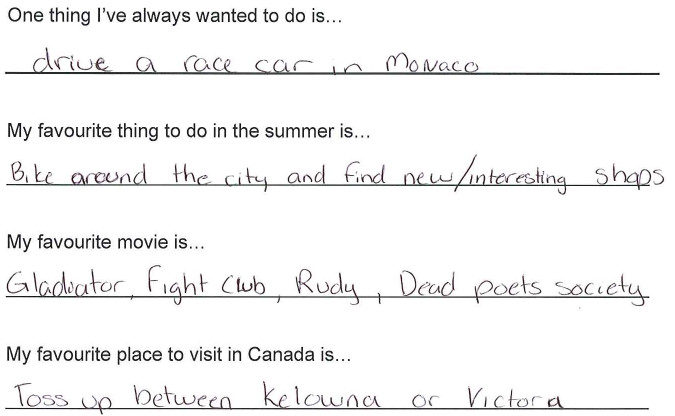 One thing I've always wanted to do is...
drive a race car in Monaco
My favourite thing to do in the summer is...
Bike around the city and find new/interesting shops
My favourite movie is...
Gladiator, Fight Club, Rudy, Dead poets society
My favourite place to visit in Canada is...
Toss up between Kelowna or Victora